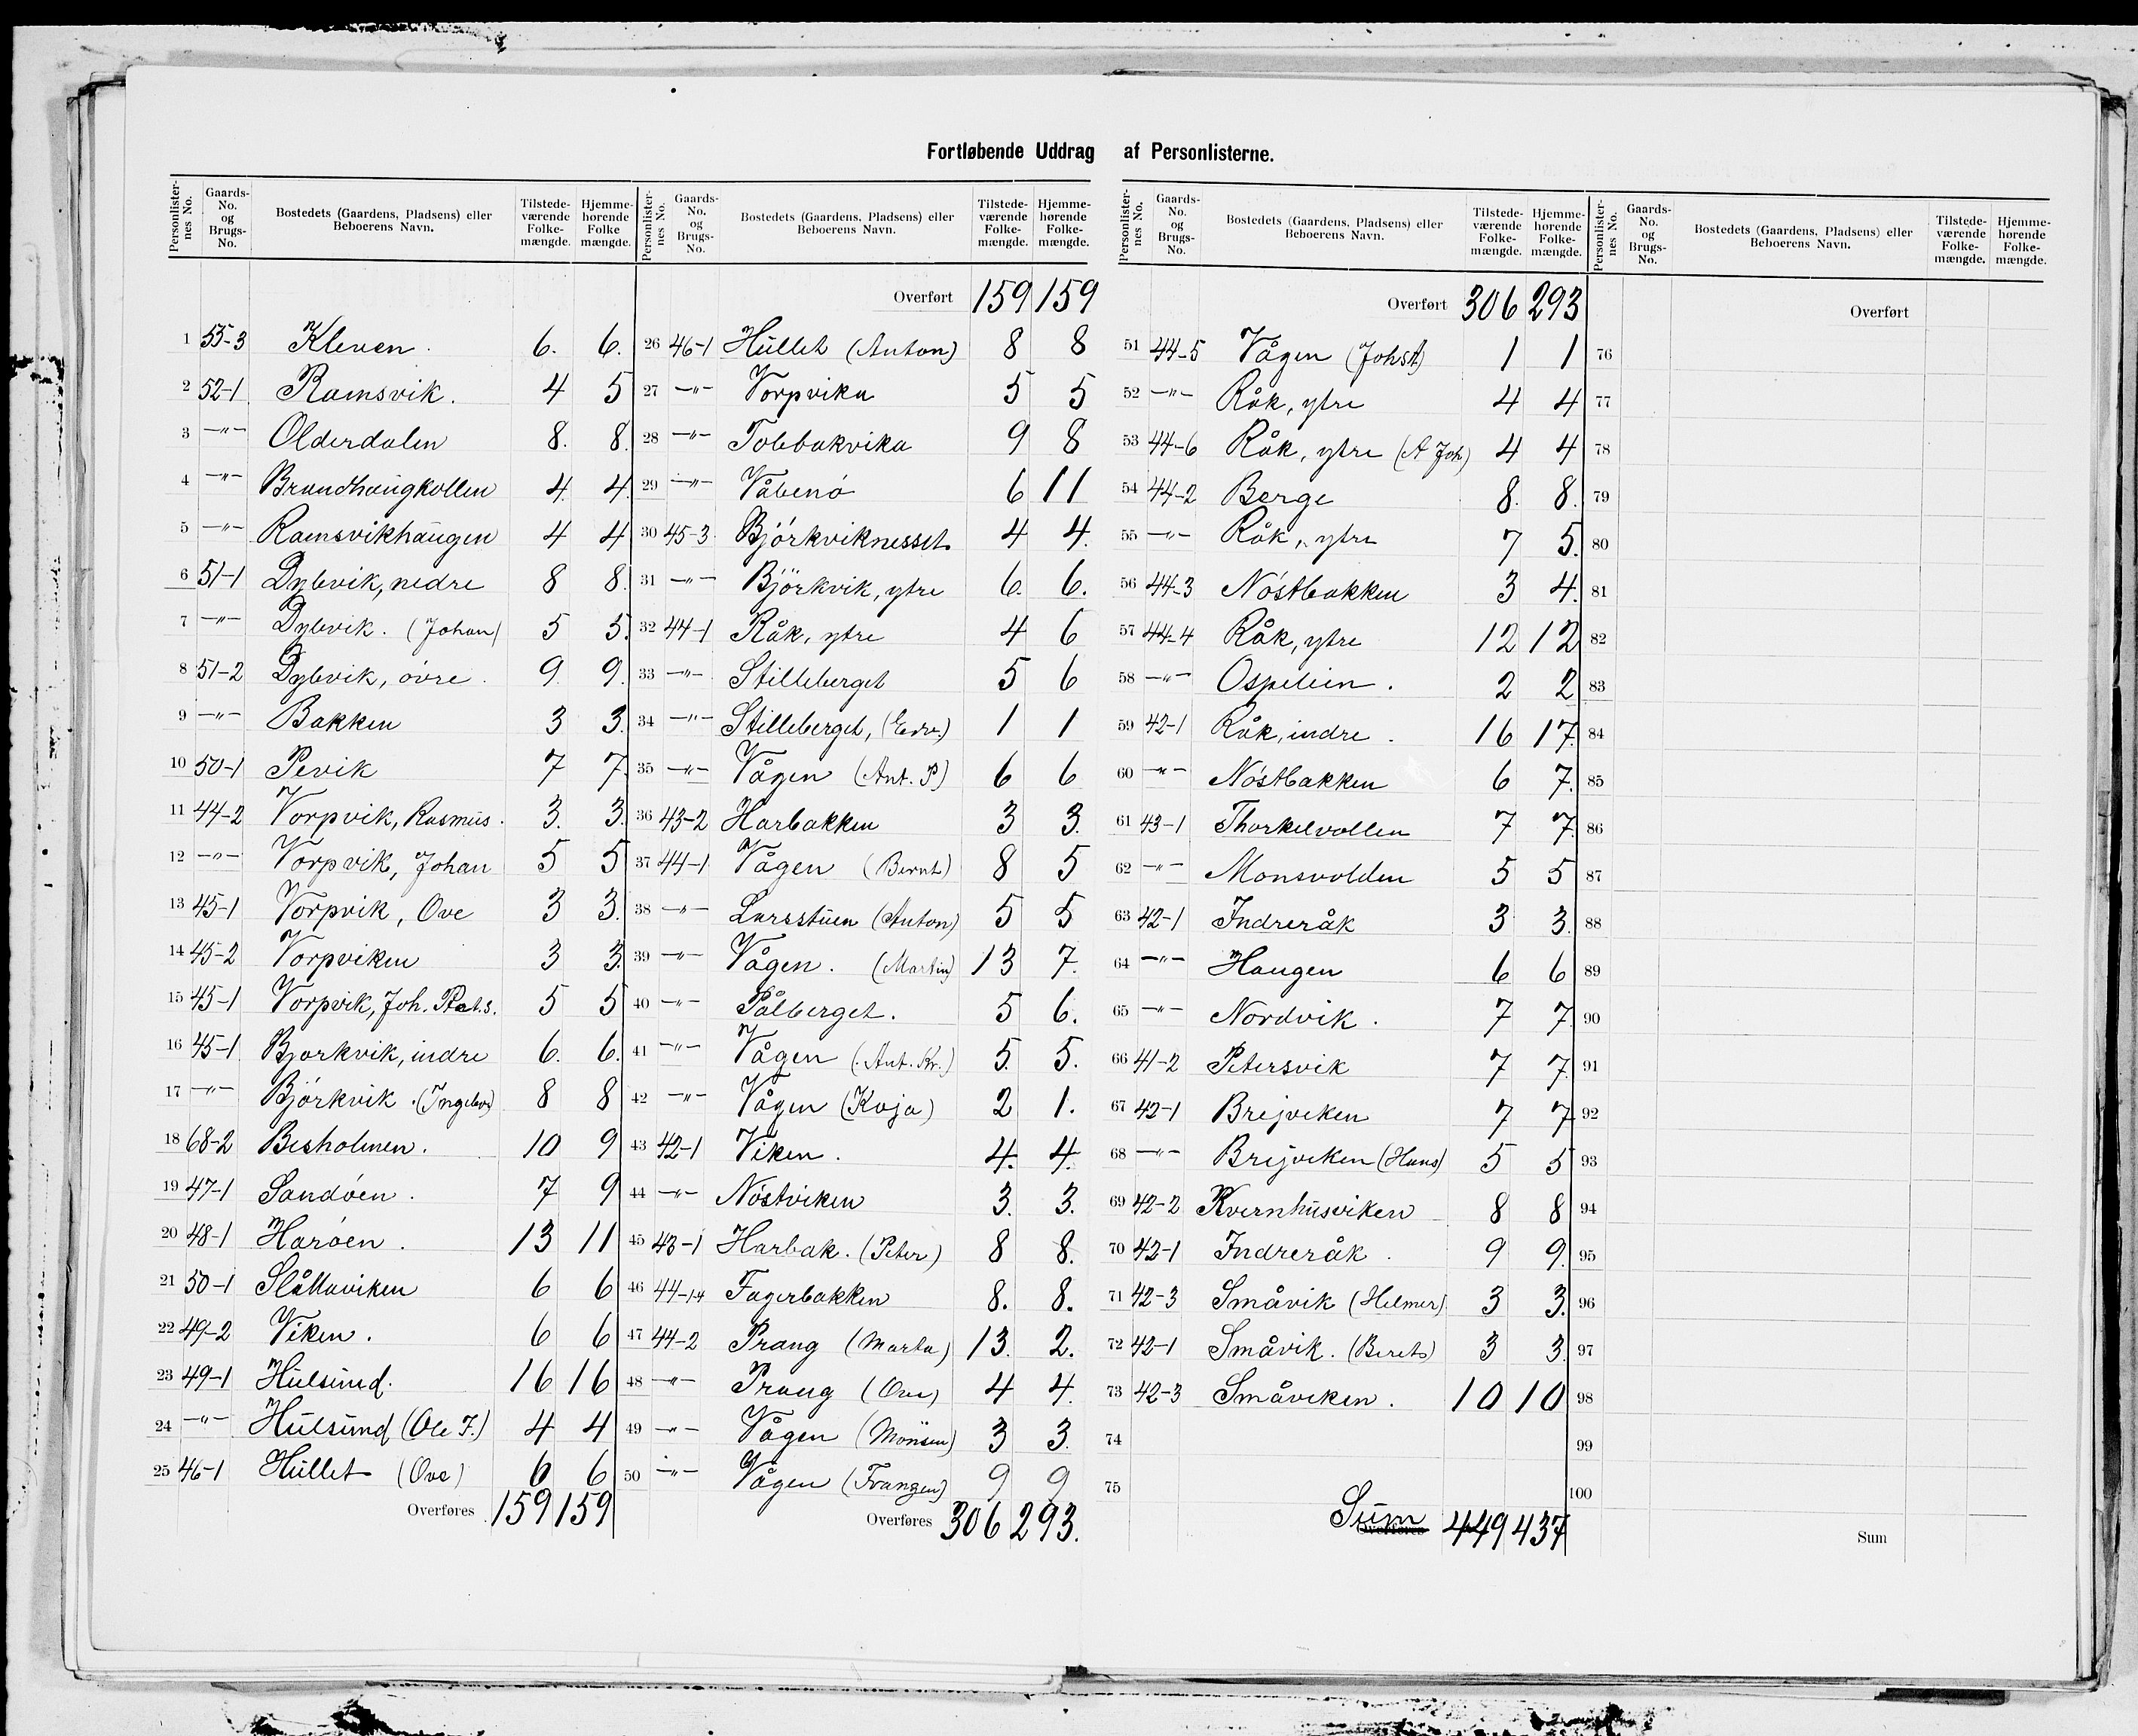 Fortløbende Uddrag af Personlisterne.
Personlisternes No. Gaards-No. og Brugs-No. Bostedets (Gaardens, Pladsens) eller Beboerens Navn. Tilstedeværende Folkemængde. Hjemmehørende Folke mængde.
1 55-3 Kleven. 6. 6.
2 52-1 Ramsvik. 4 5
3 —"— Olderdalen 8. 8.
4 —"— Brandhaugkollen 4. 4.
5 —"— Ramsvikhaugen 4 4
6 51-1 Dybvik, nedre 8 8.
7 —"— Dybvik. (Johan) 5 5.
8 51-2 Dybvik, övre. 9. 9.
9 —"— Bakken 3 3.
10 50-1 Pevik 7 7.
11 44-2 Vorpvik, Rasmus. 3. 3.
12 —"— Vorpvik, Johan 5 5
13 45-1 Vorpvik, Ove 3 3.
14 45-2 Vorpviken 3 3.
15 45-1 Vorpvik, Joh. 5 5
16 45-1 Bjorkvik, indre 6. 6.
17 —"— Björkvik. (Ingebr) 8 8
18 68-2 Besholmen. 10 9
19 47-1 Sandöen. 7 9
20 48-1 Haröen. 13 11
21 50-1 Slåttaviken 6 6
22 49-2 Viken. 6 6
23 49-1 Hulsund. 16 16
24 —"— Hulsund (Ole J.) 4 4
25 46-1 Hullet (Ove) 6 6
Overføres 159 159
Personlisternes No. Gaards-No. og Brugs-No. Bostedets (Gaardens, Pladsens) eller Beboerens Navn. Tilstedeværende Folkemængde. Hjemmehørende Folkemængde.
Overført 159 159
26 46-1 Hullet (Anton) 8 8
27 —"— Vorpvika 5 5
28 —"— Tobbakvika 9 8
29 —"— Våbenö 6 11
30 45-3 Björkviknesset 4 4.
31 —"— Björkvik, ytre 6. 6.
32 44-1 Råk, ytre 4 6
33 —"— Stilleberget 5 6
34 —"— Stilleberget, (Edv.) 1 1
35 —"— Vågen (Ant. P) 6 6
36 43-2 Harbakken 3 3.
37 44-1 Vågen (Bernt) 8 5
38 —"— Larsstuen (Anton) 5 5
39 —"— Vågen. (Martin) 13 7.
40 —"— Pålberget. 5 6.
41 —"— Vågen (Ant. Kr.) 5. 5.
42 —"— Vågen (Kaja) 2 1.
43 42-1 Viken. 4. 4.
44 —"— Nöstviken 3. 3.
45 43-1 Harbak. (Peter) 8 8.
46 44-14 Fagerbakken 8. 8.
47 44-2 Prang (Marta) 13. 2.
48 —"— Prang (Ove) 4 4.
49 —"— Vågen (Monsen) 3 3.
50 —"— Vågen (Frangen) 9 9
Overføres 306 293.
Personlisternes No. Gaards-No. og Brugs-No. Bostedets (Gaardens, Pladsens) eller Beboerens Navn. Tilstedeværende Folkemængde. Hjemmehørende Folkemængde.
Overført 306 293
51 44-5 Vågen (JohsA) 1 1
52 —"— Råk, ytre 4 4
53 44-6 Råk, ytre (A Joh) 4 4
54 44-2 Berge 8. 8.
55 —"— Råk, ytre 7 5.
56 44-3 Nöstbakken 3 4.
57 44-4 Råk, ytre 12 12
58 —"— Ospelien. 2 2
59 42-1 Råk, indre. 16 17.
60 —"— Nöstbakken 6 7.
61 43-1 Thorkelvollen 7 7.
62 —"— Monsvolden 5 5
63 42-1 Indreråk 3 3.
64 —"— Haugen 6 6
65 —"— Nordvik. 7 7.
66 41-2 Petersvik 7 7.
67 42-1 Brejviken 7 7
68 —"— Brejviken (Hans) 5 5
69 42-2 Kvernhusviken 8 8
70 42-1 Indreråk. 9 9.
71 42-3 Småvik (Helmer). 3 3.
72 42-1 Småvik. (Beret) 3 3.
73 42-3 Småviken. 10 10
74
75
Sum Overføres 449 437
Personlisternes No. Gaards-No. og Brugs-No. Bostedets (Gaardens, Pladsens) eller Beboerens Navn. Tilstedeværende Folkemængde. Hjemmehørende Folkemængde.
Overført
76
77
78
79
80
81
82
83
84
85
86
87
88
89
90
91
92
93
94
95
96
97
98
99
100
Sum